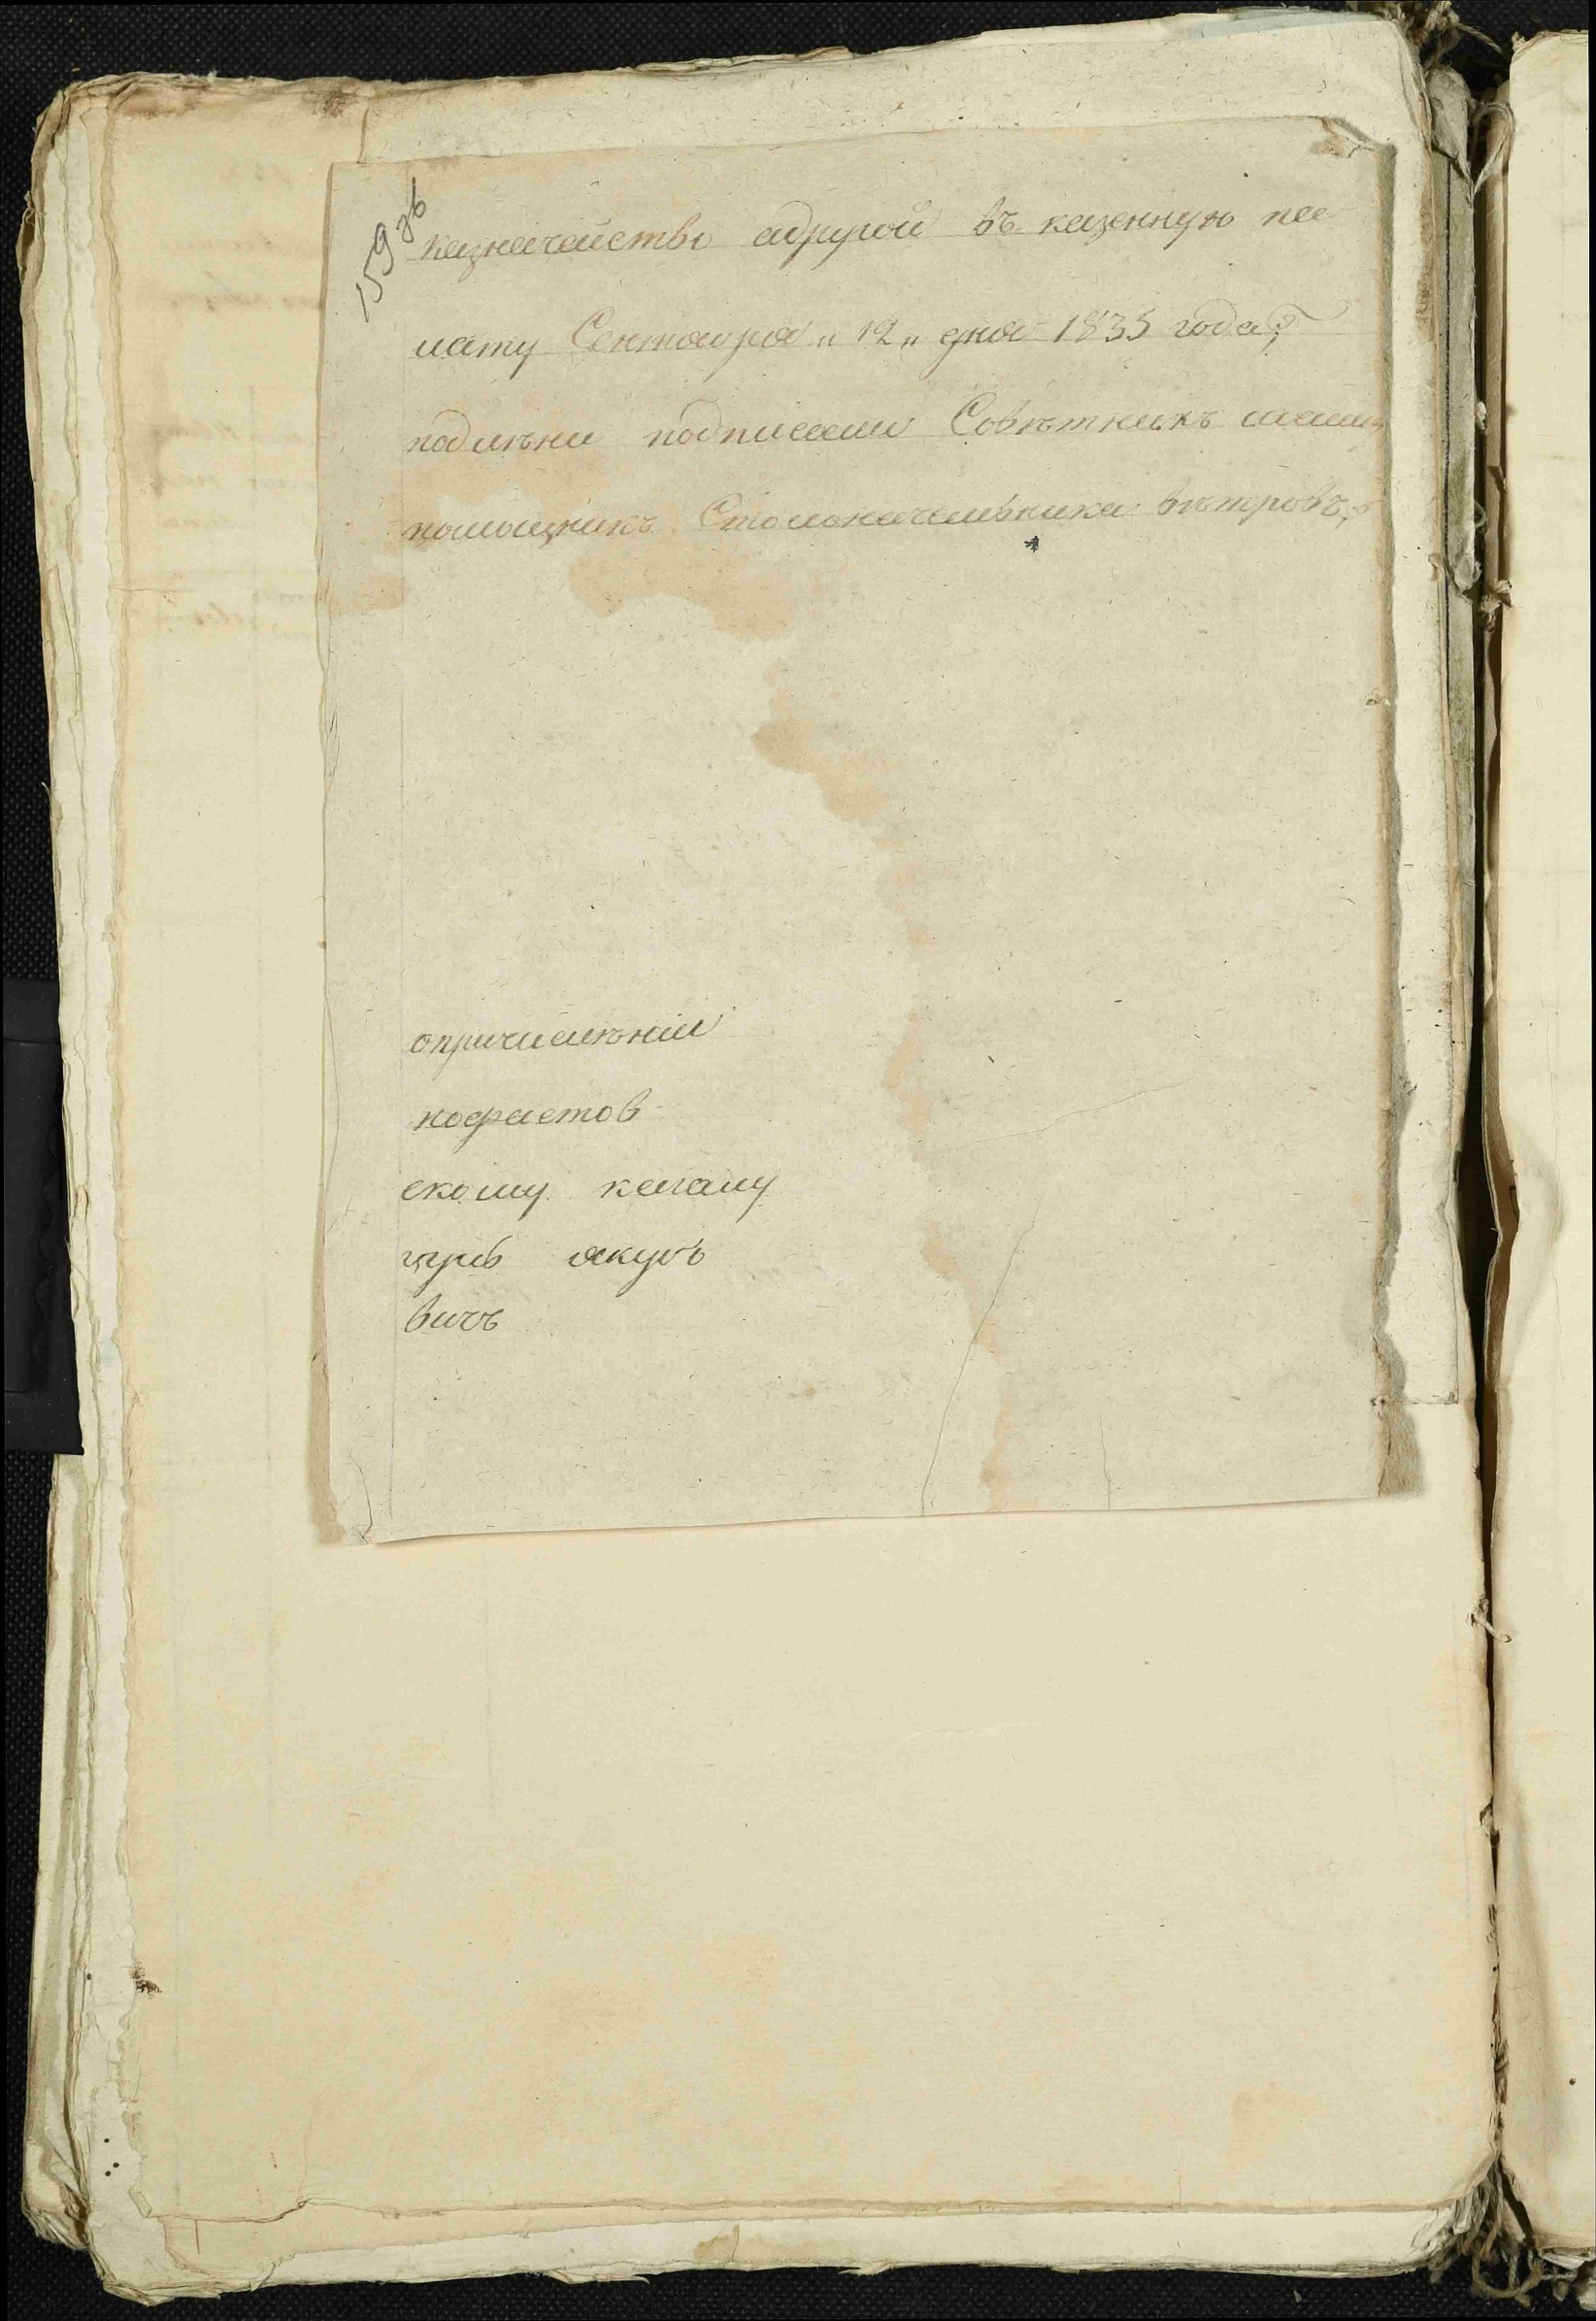 159 об
казначейство адругой въ казенную па
лату Сентоюря „12„ дня 1835 года,
подлѣни подписали Совѣтникъ
помощникъ Столоначалника вѣтровъ,
опричислѣнии
кофастов
скому кагалу
гурь якубъ
вичъ